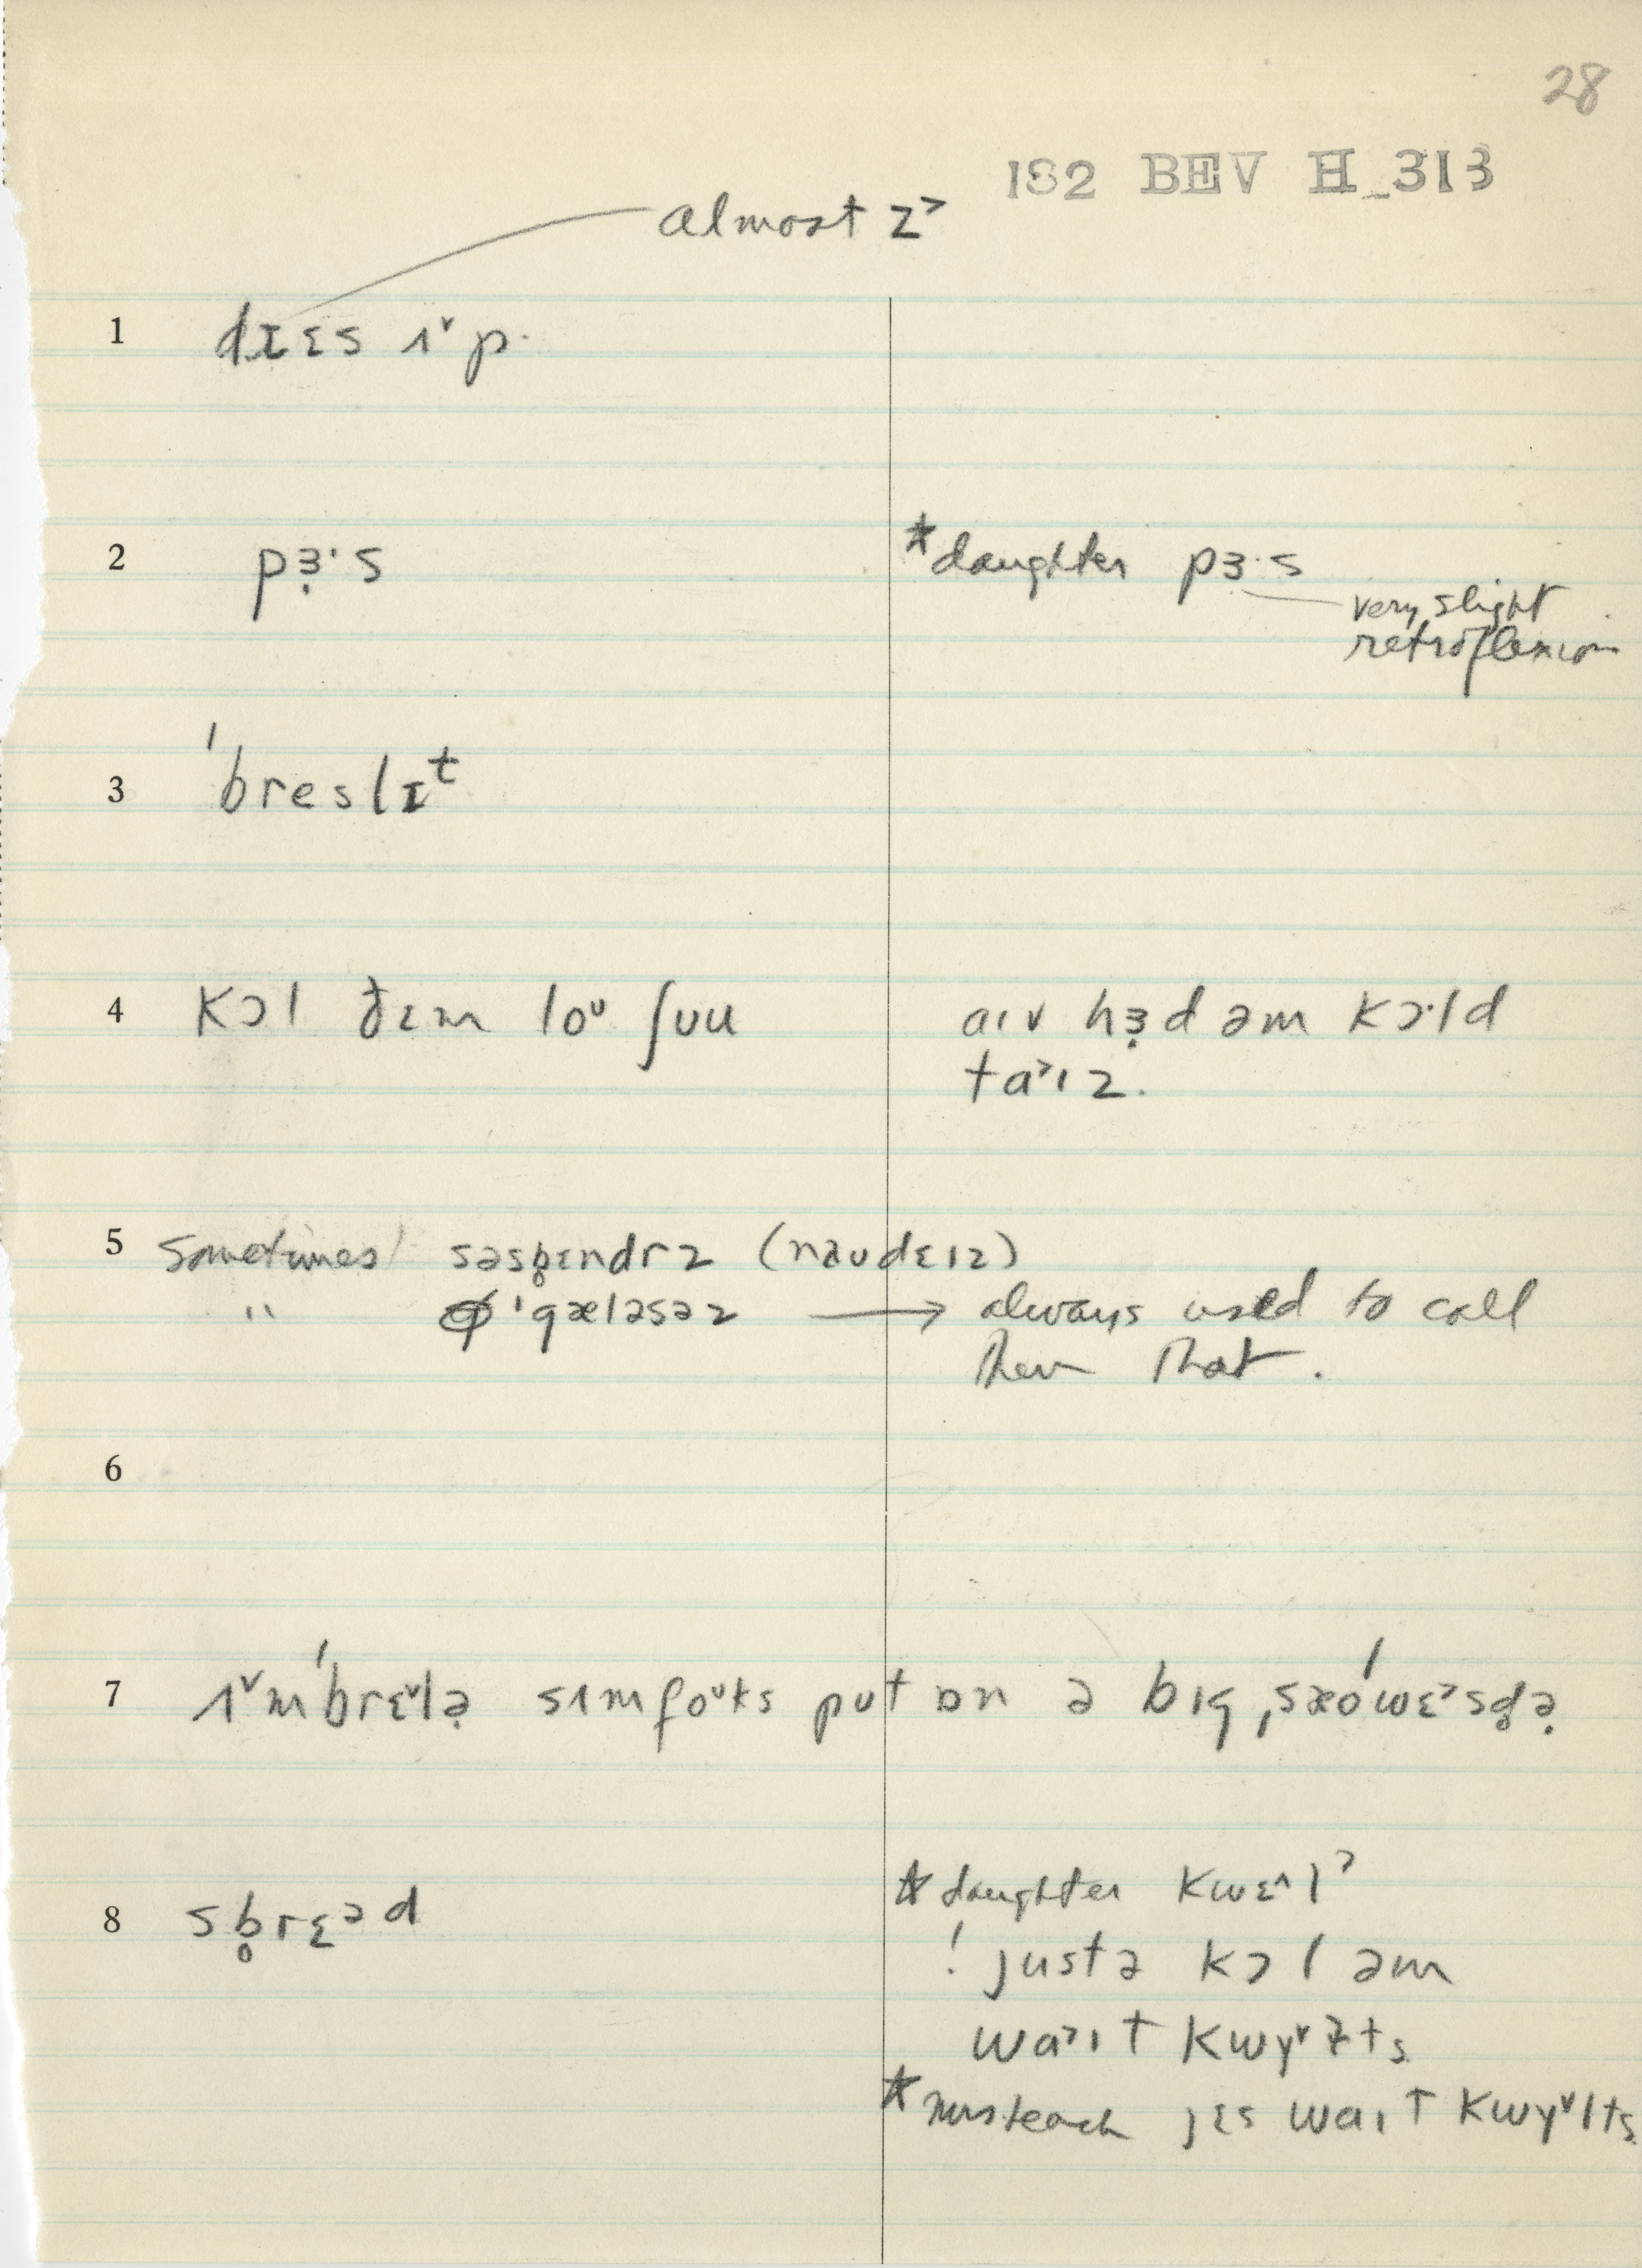 28
182 BEV H_313
almost z˃
1 dɪɛs ʌ˅p.
2 pɜ̣·s *daughter pɜ·s
very slight
retroflexion
3 ˈbreslɪᵗ
4 kɔl ðɛm loᶷ ʃʊu aɪv hɜ̣d əm kɔ·ld
ta˃ɪz.
5 Sometimes səsb̥ɛndrz (naʊdɛɪz)
" ˈgæləsəz → always used to call
them that.
6
7 ʌ˅mˈbrɛ˅lə̣ sʌmfoᶷks put ɒn ə bɪg ˌsæoˈwɛ˃sd̥ə̣
8 sb̥rɛᵊd *daughter kwɛ˄l˃
! justə kɔl əm
wa˃ɪt kwɣ˅ɫts
* jɛs waɪt kwɣ˅lts